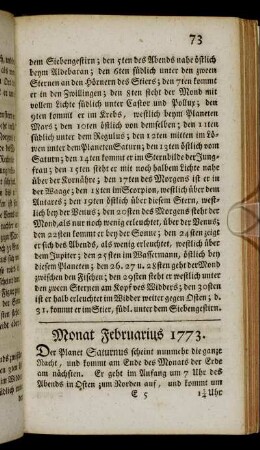 73
dem Siebengestirn; den 5ten des Abends nahe östlich
beym Aldebaran; den 6ten südlich unter den zween
Sternen an den Hörnern des Stiers; den 7ten kommt
er in den Zwillingen; den 8ten steht der Mond mit
vollem Lichte südlich unter Castor und Pollux; den
9ten kommt er im Krebs, westlich beym Planeten
Mars; den 10ten östlich von demselben; den 11ten
südlich unter dem Regulus; den 12ten mitten im Lö-
wen unter dem Planeten Saturn; den 13ten östlich vom
Saturn; den 14ten kommt er im Sternbilde der Jung-
frau; den 15ten steht er mit noch halbem Lichte nahe
über der Kornähre; den 17ten des Morgens ist er in
der Waage; den 18ten im Scorpion, westlich über dem
Antares; den 19ten östlich über diesem Stern, west-
lich bey der Venus; den 20sten des Morgens steht der
Mond, als nur noch wenig erleuchtet, über der Venus;
den 22sten kommt er bey der Sonne; den 24sten zeigt
er sich des Abends, als wenig erleuchtet, westlich über
dem Jupiter; den 25sten im Wassermann, östlich bey
diesem Planeten; den 26. 27 u. 28sten geht der Mond
zwischen den Fischen; den 29sten steht er westlich unter
den zween Sternen am Kopf des Widders; den 30sten
ist er halb erleuchtet im Widder weiter gegen Osten; d.
31. kommt er im Stier, südl. unter dem Siebengestirn.
Monat Februarius 1773.
Der Planet Saturnus scheint nunmehr die ganze
Nacht, und kommt am Ende des Monats der Erde
am nächsten. Er geht im Anfang um 7 Uhr des
Abends in Osten zum Norden auf, und kommt um
E 5 1¼ Uhr